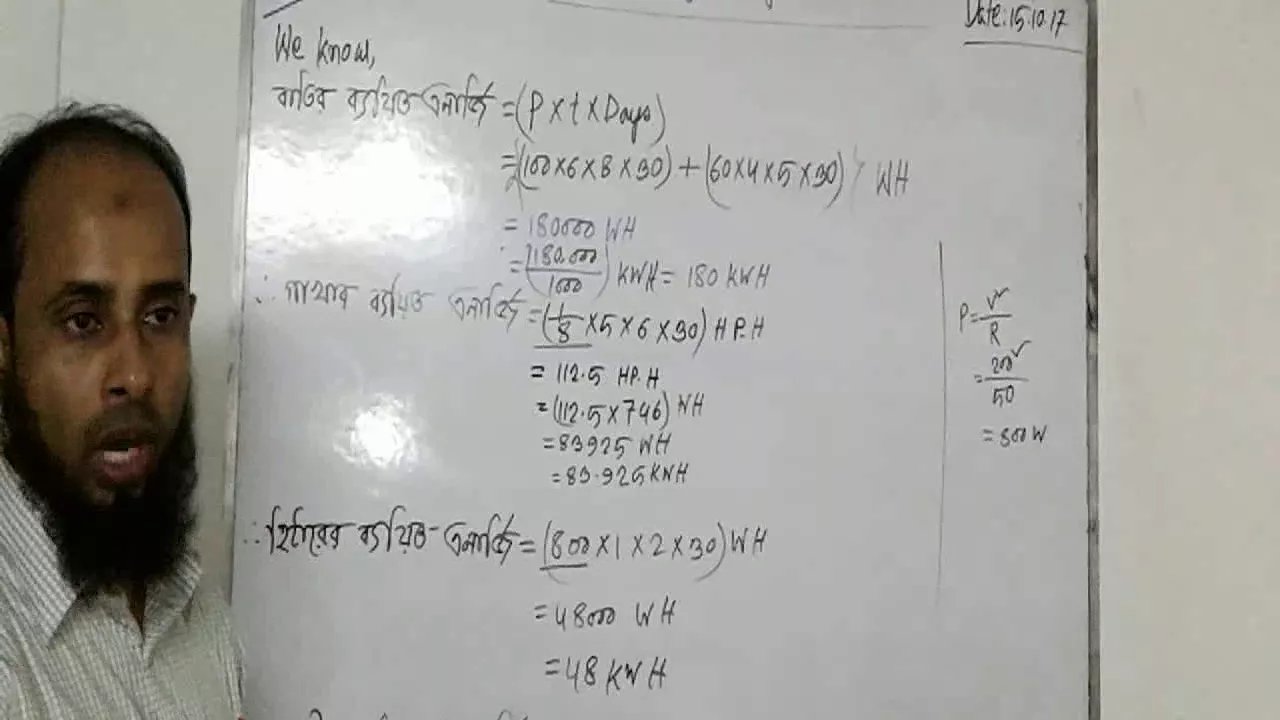 Date: 15.10.17
We know,
বাতির ব্যয়িত এনার্জি = (P × t × Days)
= (100×6×8×30) + (60×4×5×30) WH
= 180000 WH
= (180000/1000) KWH = 180 KWH
∴ পাখার ব্যয়িত এনার্জি = (1/8 ×5×6×30) HP.H
= 112.5 HP.H
= (112.5×746) WH
= 83925 WH
= 83.925 KWH
∴ হিটারের ব্যয়িত এনার্জি = (800×1×2×30) WH
= 48000 WH
= 48 KWH
P = V²/R
= 200²/50
= 800 W